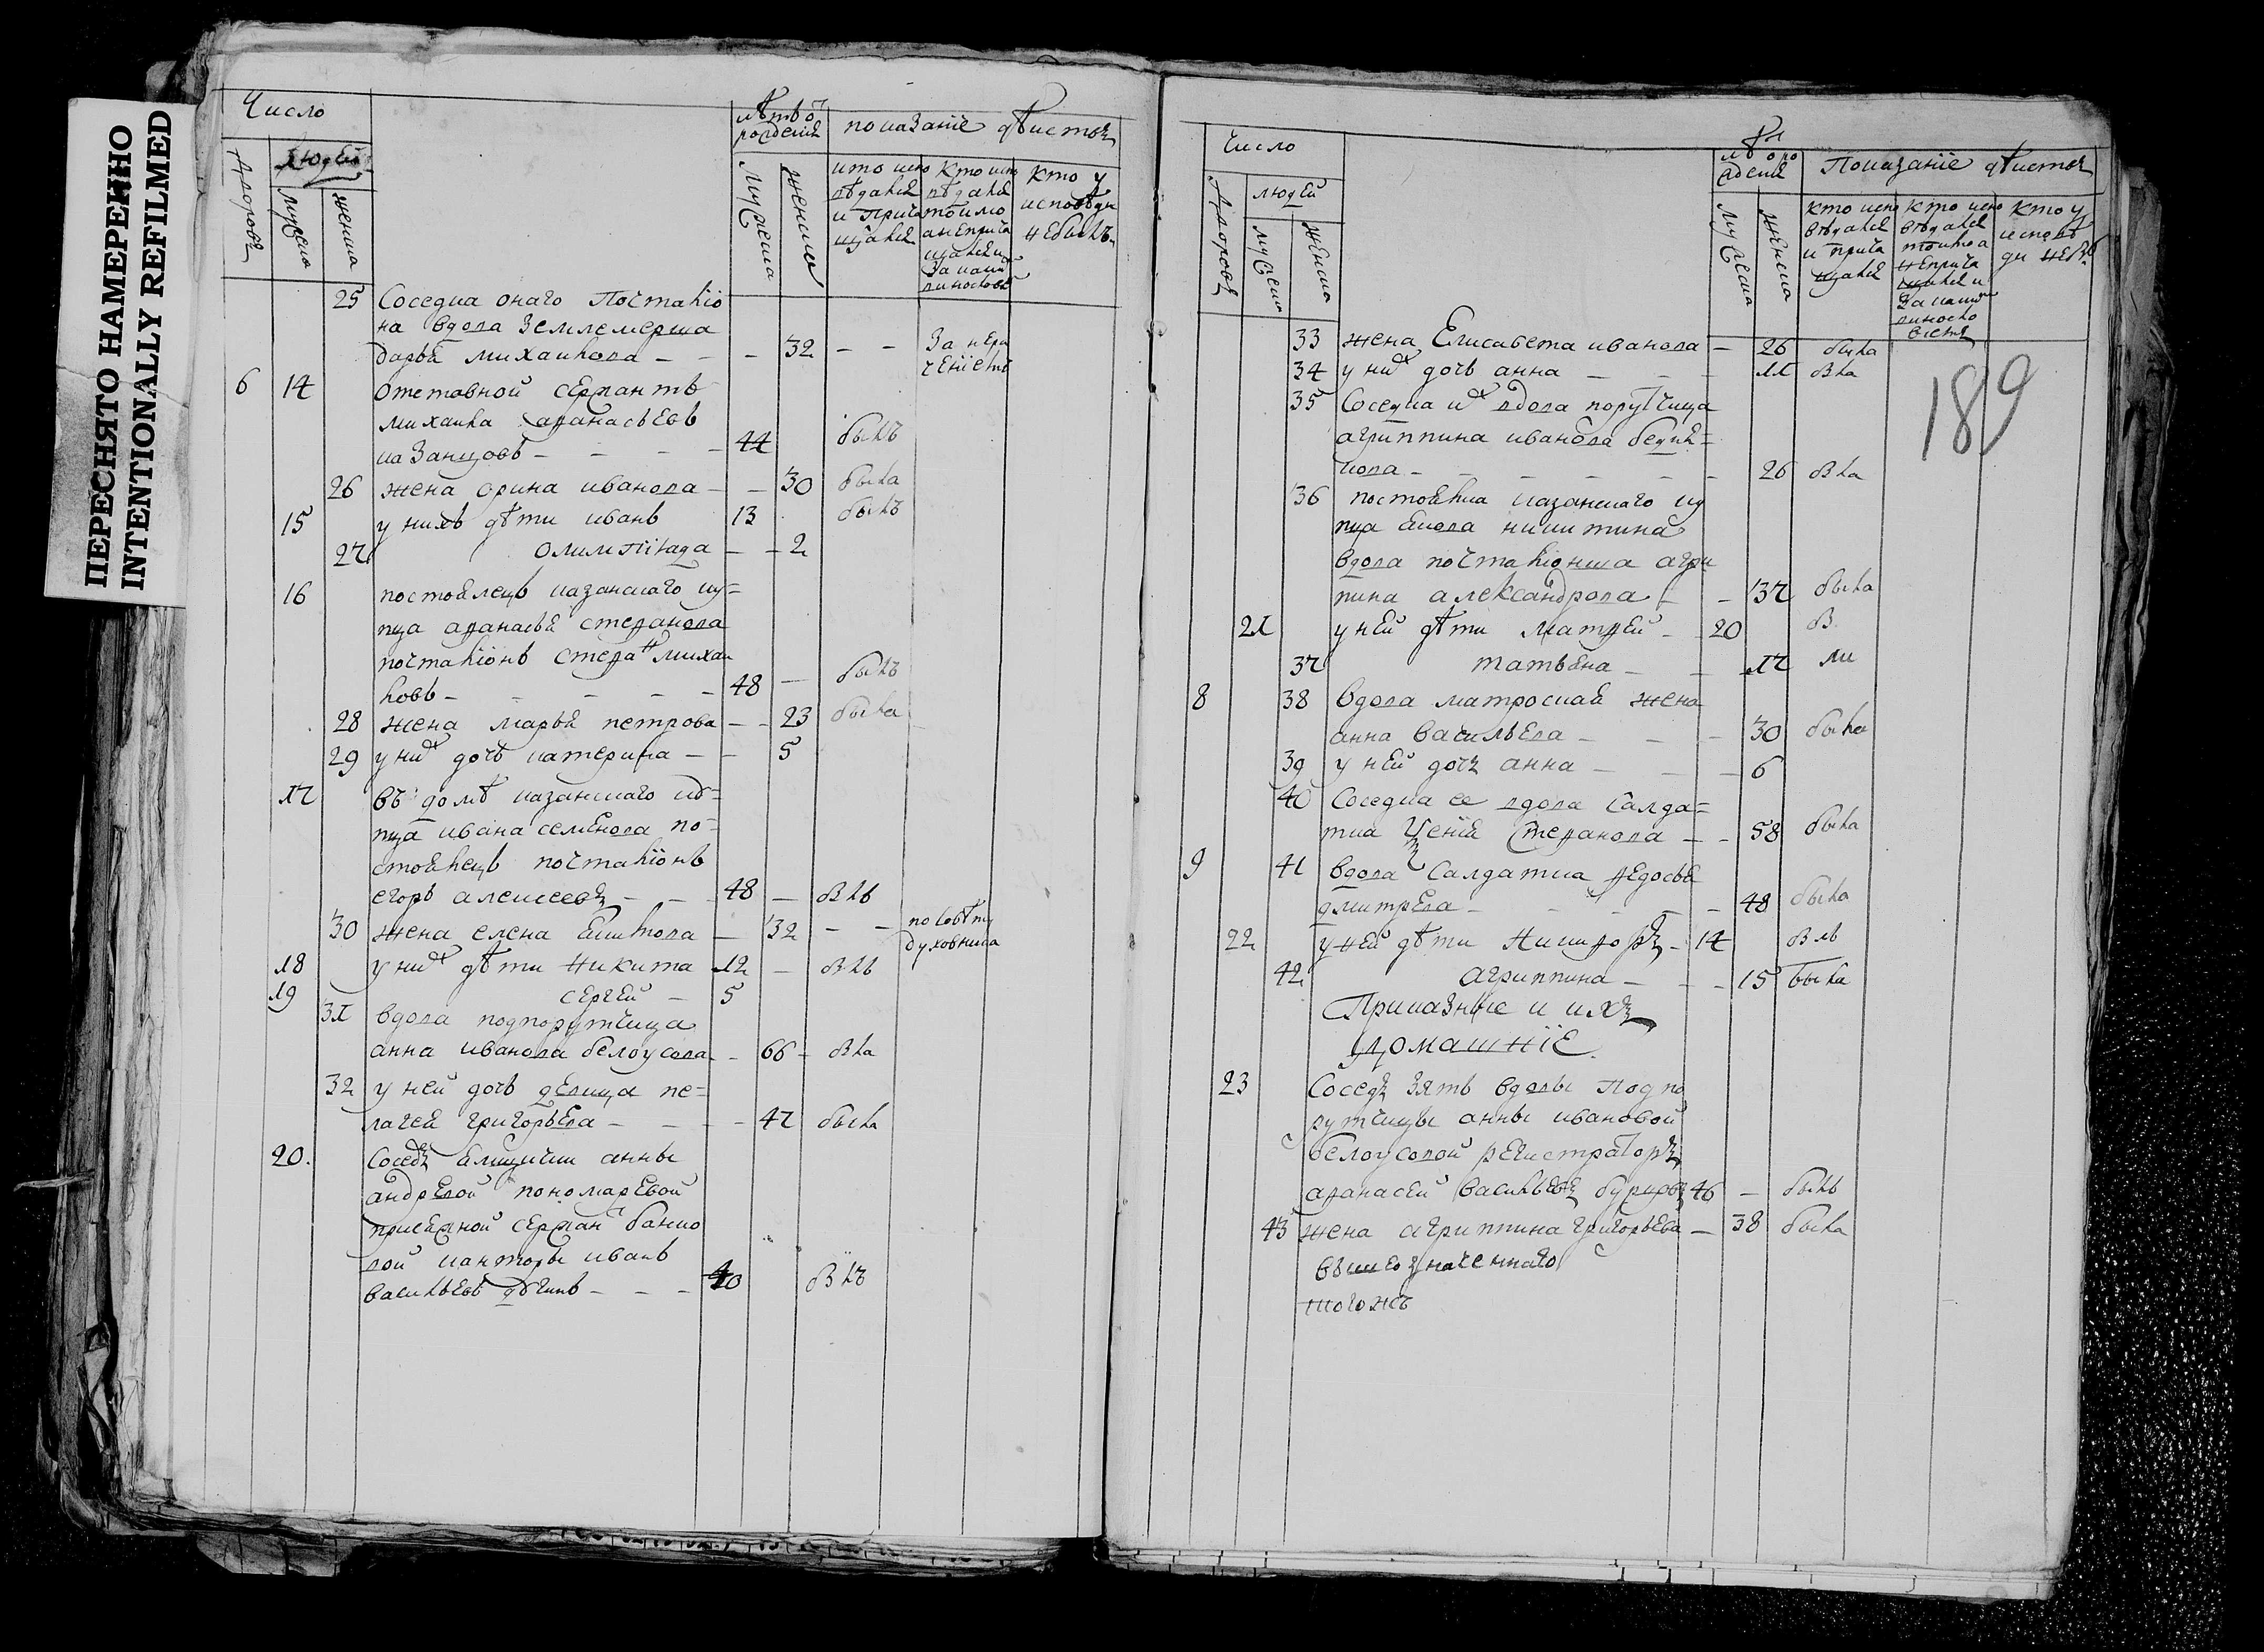 ПЕРЕСНЯТО НАМЕРЕННО
INTENTIONALLY REFILMED
Число
людей
дворовъ
мужеска
женска
лѣтъ от рождения
показанїе дѣйства
мужеска
женска
кто испо
вѣдался
и прича
щался
кто испо
вѣдался
токмо
а неприча
щался и
за каки
виносло
кто у
исповѣди
небылъ
25 Соседка онаго почталїо
на вдова землемерша
дарья михаилова - - - 32 - -
6 14 отставной сержантъ
михаила афанасьевъ
казанцовъ - - - - 44 былъ
26 жена орина иванова - - 30 была
15 у нихъ дѣти иванъ 13 былъ
27 олимпїада - - 2
16 постоялецъ казанскаго ку=
пца афанасья стефанова
почталїонъ стефан михаи
ловъ - - - - - 48 - былъ
28 жена марья петрова - - 23 была
29 у них дочь катерина - - 5
17 въ домѣ казанскаго ку=
пца ивана семенова по=
стоялецъ почталїонъ
егоръ алексеевъ - - - 48 - блъ
30 жена елена - 32 - - по совѣту
духовника
18 у них дѣти никита 12 - блъ
19 сергей - 5
31 вдова подпорутчица
анна иванова белоусова - 66 - бла
32 у ней дочь девица пе=
лагея григорьева - - - - 47 была
20. Соседъ ямщички анны
андревой пономаревой
присяжной сержан банко
вой канторы иванъ
васильевъ - - - 40 блъ
Число
людей
дворовъ
мужеска
женска
Показанїе дѣйства
мужеска
женска
кто испо
вѣдался
и прича
щался
кто испо
вѣдался
токмо а
неприча
щался и
за каки
виносло
вїемъ
кто у
исповѣ
ди небы
189
33 жена Елисавета иванова - 26 была
34 у них дочь анна - - - 11 бла
35 Соседка их вдова порутчица
агриппина иванова
кова - - - - - - 26 бла
36 постоялка казанскаго ку
пца якова никитина
вдова почталїонша агри
пина александрова - - 37 была
21 у ней дѣти матфей - 20 б
37 татьяна - - 17
8 38 вдова матроская жена
анна васильева - - - 30 была
39 у ней дочъ анна - - - 6
40 Соседка ее вдова Салда=
тка Ксенїя Стефанова - - 58 была
9 41 вдова Салдатка федосья
дмитрева - - - - - 48 была
22 у ней дѣти Никифоръ - 14 блъ
42 агриппина - - - 15 была
Приказные и ихъ
домашнїе.
23 Соседъ зять вдовы подпо
рутчицы анны ивановой
белоусовой регистраторъ
афанасей васильевъ 46 - былъ
43 жена агриппина григорьева - 38 была
вышеозначеннаго